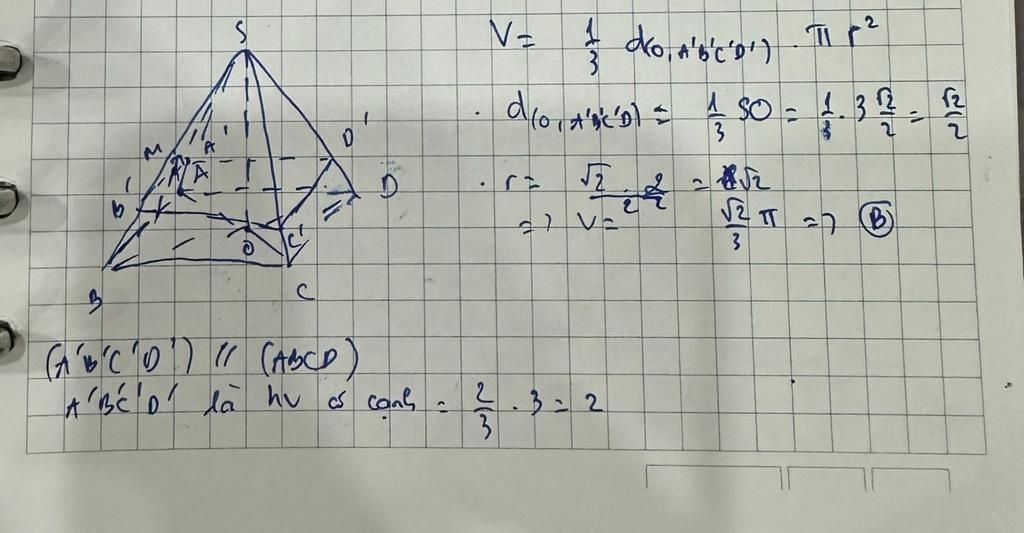 S
M
A'
D'
A'
A
D
B'
O
C'
B
C
V = 1/3 d(O, A'B'C'D') . π r²
. d(O, A'B'C'D') = 1/3 SO = 1/3 . 3 √2/2 = √2/2
. r = √2/2 . 2 = √2
=> V = √2/3 π => B
(A'B'C'D') // (ABCD)
A'B'C'D' là hv có cạnh = 2/3 . 3 = 2